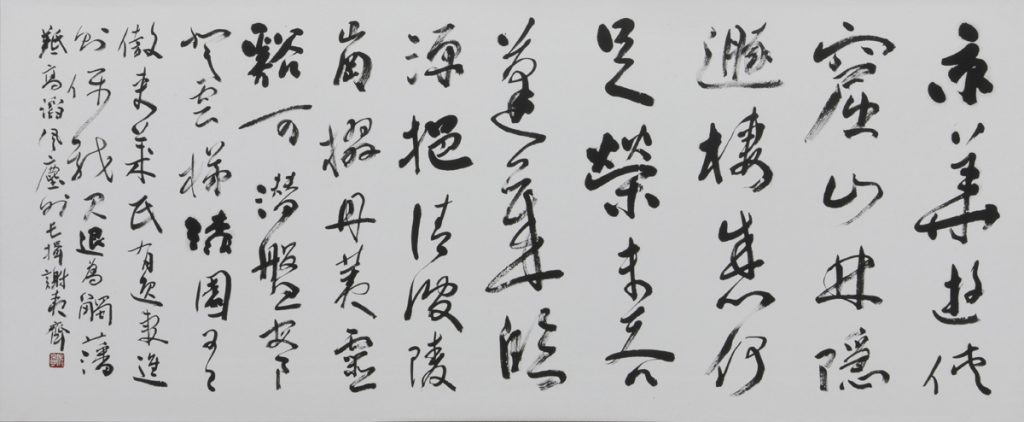 京華遊俠
窟山林隱
遯棲朱門何
足榮未若
蓬萊臨
源挹清波陵
崗掇丹荑靈
谿可潛盤安事
登雲梯漆園有
傲吏萊氏有逸妻進
則保龍見退為觸藩
羝高蹈風塵外長揖謝夷齊